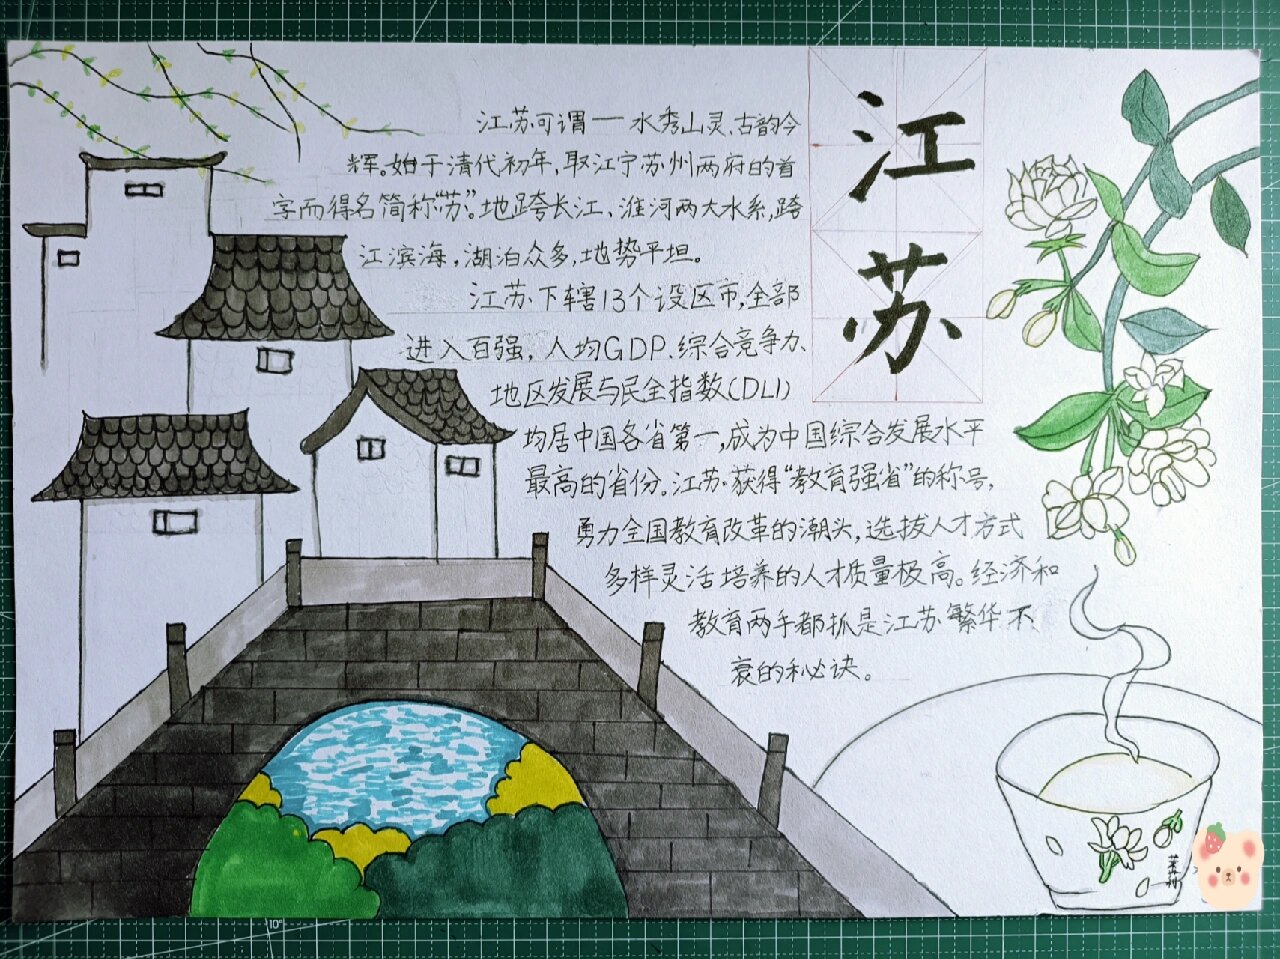 江苏
江苏可谓一水秀山灵,古韵今
辉。始于清代初年,取江宁苏州两府的首
字而得名简称“苏”。地跨长江、淮河两大水系,跨
江滨海,湖泊众多,地势平坦。
江苏下辖13个设区市,全部
进入百强,人均GDP、综合竞争力、
地区发展与民全指数(DLI)
均居中国各省第一,成为中国综合发展水平
最高的省份。江苏获得“教育强省”的称号,
勇力全国教育改革的潮头,选拔人才方式
多样灵活培养的人才质量极高。经济和
教育两手都抓是江苏繁华不
衰的秘诀。
10°